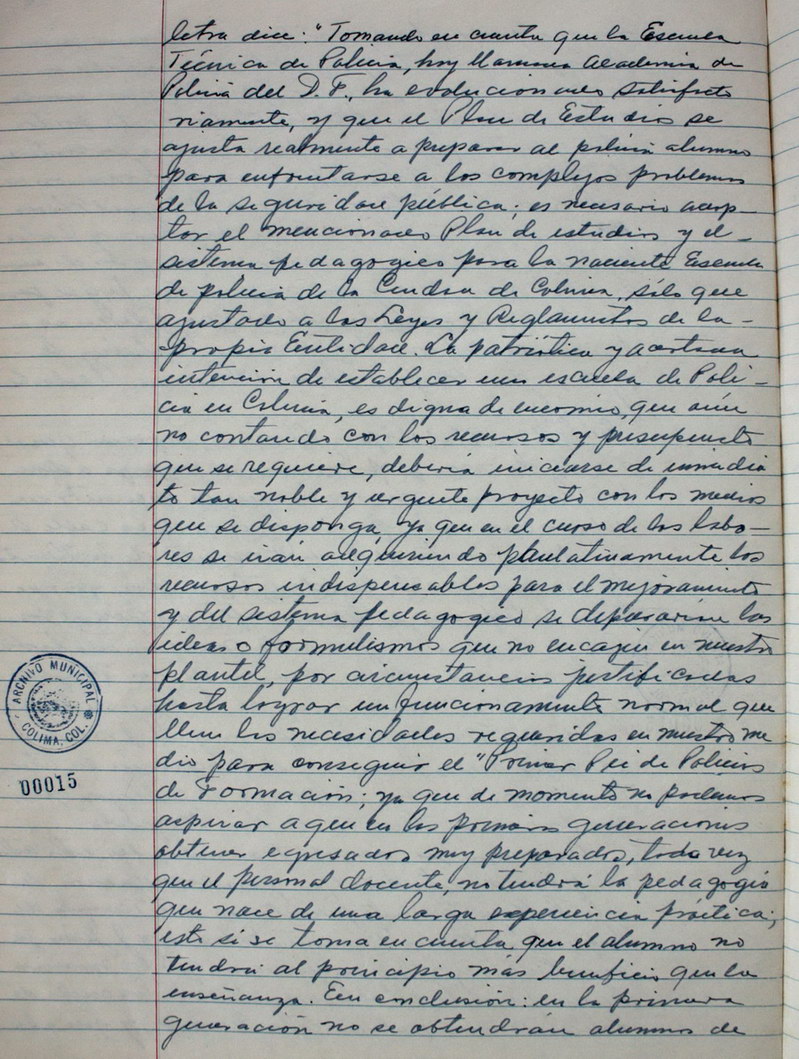 letra dice: "Tomando en cuenta que la Escuela
Técnica de Policia, hoy llamada Academia de
Policia del D. F., ha evolucionado satisfacto
riamente, y que el Plan de Estudios se
ajusta realmente a preparar al policia alumno
para enfrentarse a los complejos problemas
de la seguridad pública; es necesario acep-
tar el mencionado Plan de estudios y el -
sistema pedagogico para la naciente Escuela
de policia de la Ciudad de Colima, sólo que
ajustado a las Leyes y Reglamentos de la -
propia Entidad. La patriótica y acertada
intención de establecer una escuela de Poli-
cia en Colima, es digna de encomio, que aún
no contando con los recursos y presupuesto
que se requiere, deberia iniciarse de inmedia
to tan noble y urgente proyecto con los medios
que se disponga, ya que en el curso de las labo-
res se irán adquiriendo paulatinamente los
recursos indispensables para el mejoramiento
y del sistema pedagogico se depurarian las
ideas o formulismos que no encajen en nuestro
plantel, por circunstancias justificadas
hasta lograr un funcionamiente normal que
llene las necesidades requeridas en nuestro me
dio para conseguir el "Primer Pié de Policias
de Formación; ya que de momento no podemos
aspirar a que en las primeras generaciones
obtener egresados muy preparados, toda vez
que el personal docente, no tendrá la pedagogia
que nace de una larga experiencia práctica;
esto si se toma en cuenta que el alumno no
tendrá al principio más beneficio que la
enseñanza. En conclusión: en la primera
generación no se obtendrán alumnos de
ARCHIVO MUNICIPAL
COLIMA, COL.
00015